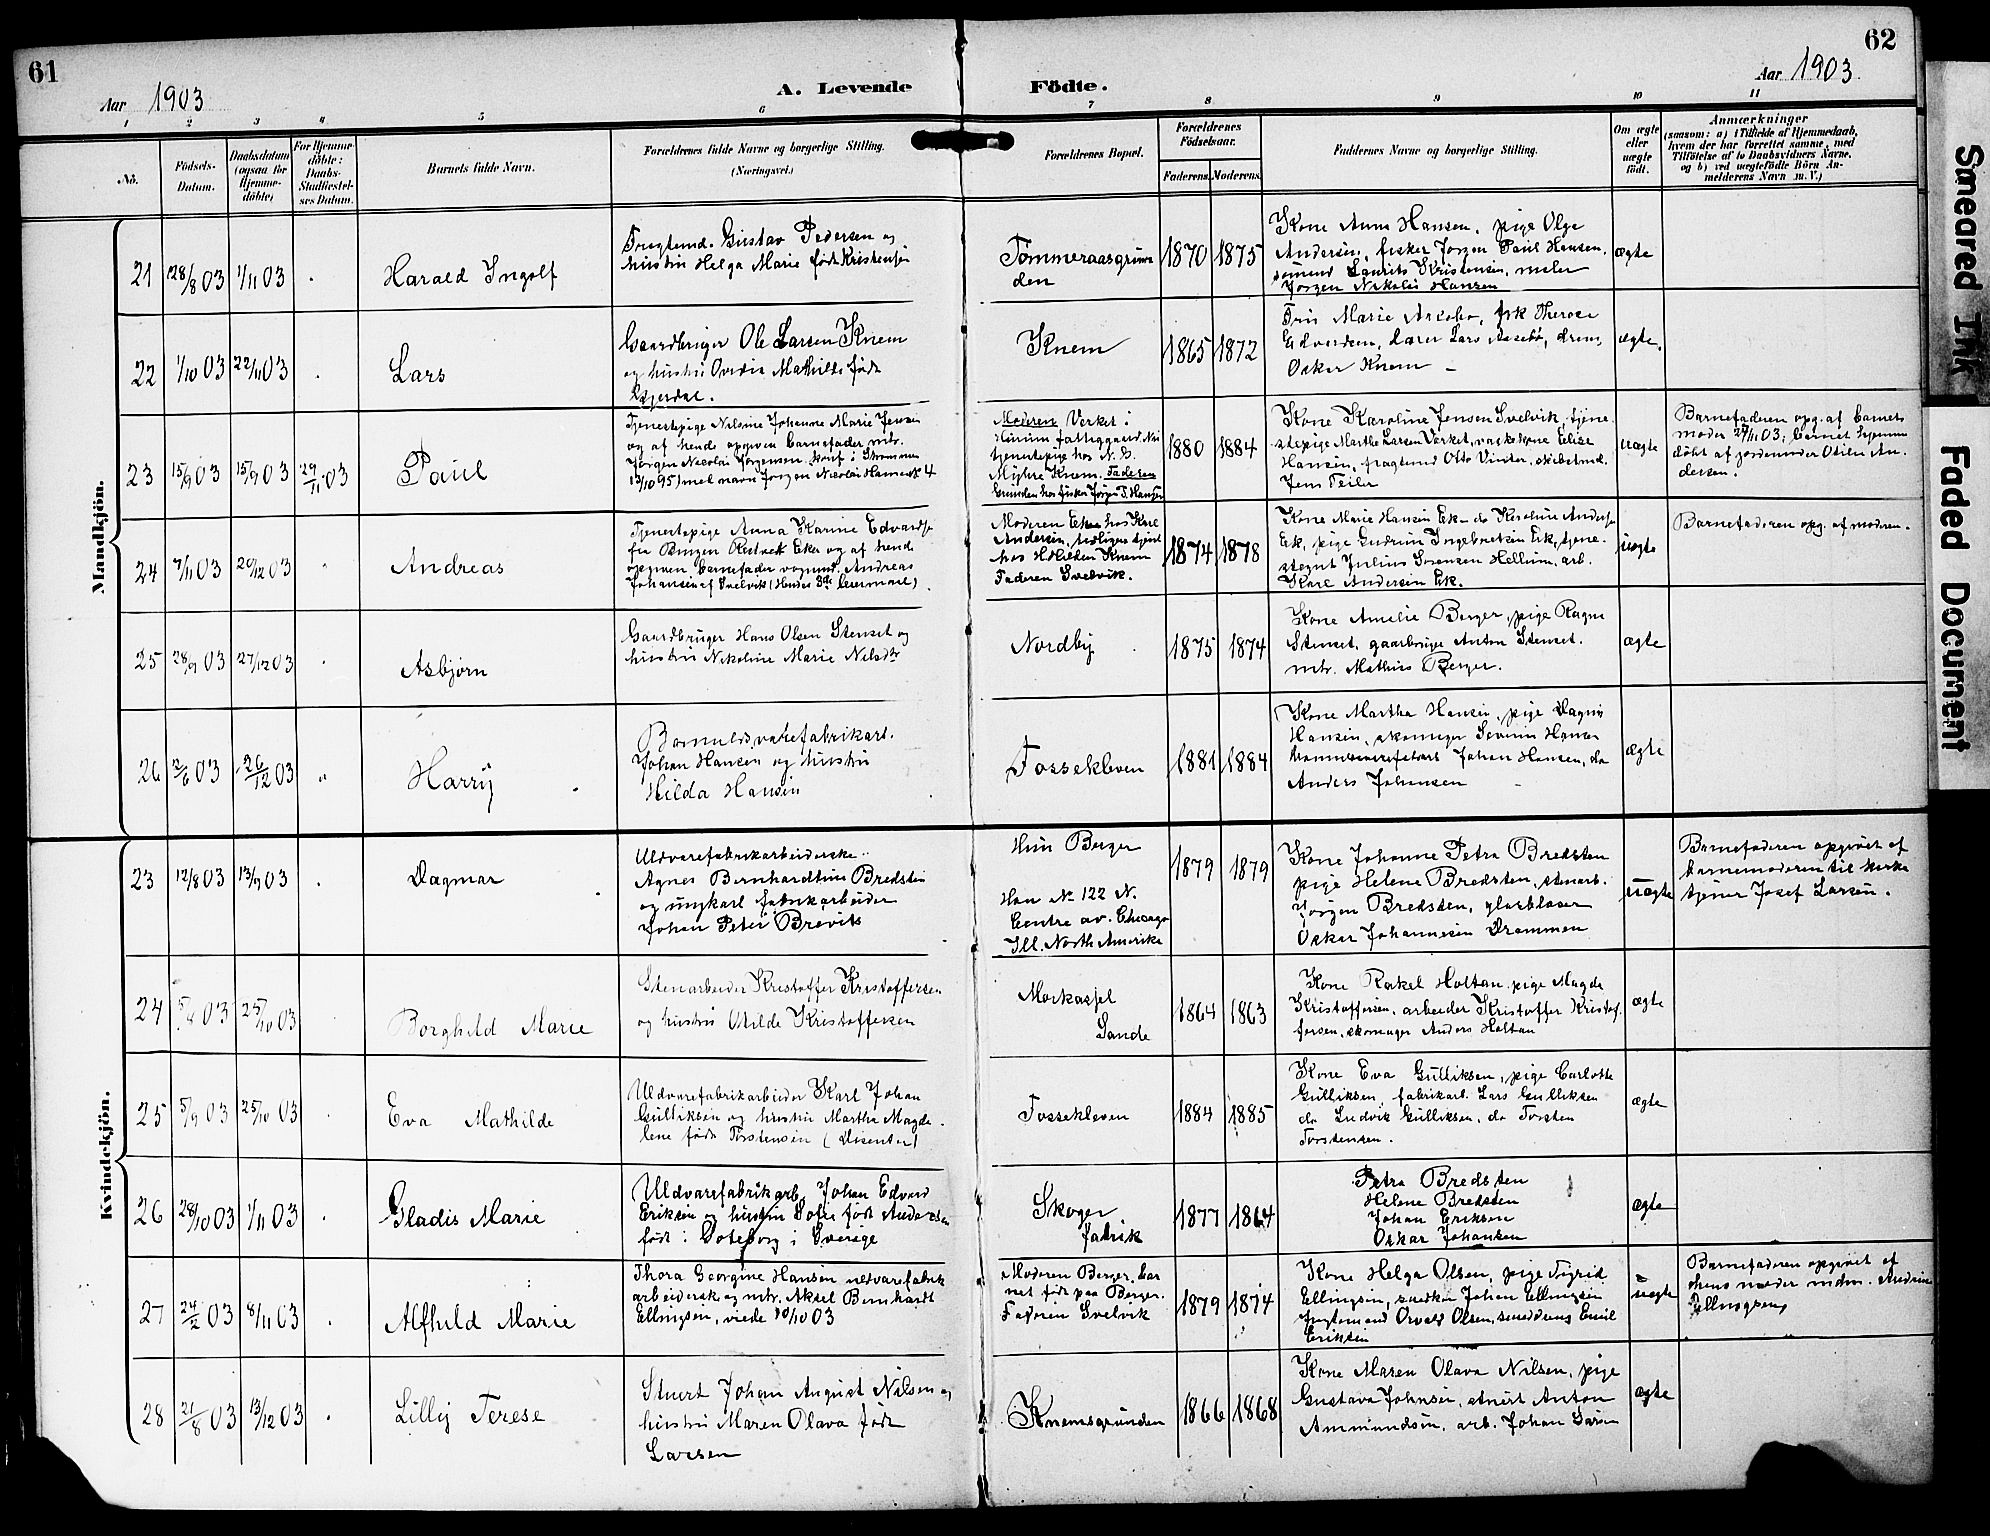 61
62
Aar 1903
A. Levende Födte.
Aar 1903
Smeared Ink
Faded Document
1 2 3 4 5 6 7 8 9 10 11
Nö.
Födsels-Datum.
Daabsdatum (ogsaa for Hjemmedöbte)
For Hjemmedöbte: Daabs-Stadfæstelses Datum.
Barnets fulde Navn.
Forældrenes fulde Navne og borgerlige Stilling. (Næringsvei.)
Forældrenes Bopæl.
Forældrenes Födselsaar.
Faderens. Moderens.
Faddernes Navne og borgerlige Stilling.
Om ægte eller uægte födt.
Anmærkninger
(saasom: a) i Tilfælde af Hjemmedaab,
hvem der har forrettet samme, med
Tilföielse af to Daabsvidners Navne,
og b) ved uægtefödte Börn Anmelderens Navn m. V.)
Mandkjön.
21 28/8 03 1/11 03 Harald Ingolf
Fragtemd. Gustav Pedersen og
hustru Helga Marie født Kristensen
Tømmeraasgrunden
1870 1875
Kone Anna Hansen, pige Olga
Andersen, fisker Jørgen Paul Hansen,
sømand Laurits Kristensen, maler
Jørgen Nikolai Hansen
ægte
22 1/10 03 22/11 03 Lars
Gaardbruger Ole Larsen Knem
og hustru Ovidia Mathilde født
Knem
1865 1872
Oskar Knem
ægte.
23 15/9 03 15/9 03 29/11 03 Paul
Tjenestepige Nilsine Johanne Marie Jensen
og af hende opgiven barnefader mtr.
Jørgen Nicolai Jørgensen
13/10 95) med navn Jørgen Nicolai Hansen
Moderen Verket i
tjenestepige hos N. C.
Myhre Knem. Faderen
Grunden hos fisker Jørgen P. Hansen
1880 1884
Kone Karoline Jensen Svelvik, tjene
stepige Marthe Larsen Verket, vaskekone Elise
Hansen, fragtemd Otto Vinter, skibstmd.
Jens Teiler
uægte
Barnefaderen opg. af barnets
moder 29/11 03; barnet hjemme
døbt af jordemoder Otilie An
dersen.
24 7/11 03 20/12 03 Andreas
Tjenestepige Anna Karine Edvards
og af hende
opgiven barnefader vognmd. Andreas
Johansen af Svelvik (Hendes 3die Leiermaal)
Moderen Ek hos Karl
Andersen, tidligere tjent
hos Knem
Faderen Svelvik.
1874 1878
Kone Marie Hansen Ek, do Karoline Anders
Ek, pige Gudrun Ingebretsen Ek, tjene
stegut Julius Sørensen Hellum, arb.
Karl Andersen Ek.
uægte
Barnefaderen opg. af moderen.
25 28/9 03 27/12 03 Asbjørn
Gaardbruger Hans Olsen Stenset og
hustru Nikoline Marie Nilsdtr
Nordby
1875 1874
Kone Amelie Berger, pige Ragna
Stenset, gaarbruge Anton Stenset.
mtr. Mathias Berger.
ægte
26 2/6 03 26/12 03 " Harry
Bomuldsvarefabrikarb.
Johan Hansen og hustru
Hilda Hansen
Fossekleven
1881 1884
Kone Martha Hansen, pige Dagny
Hansen, skomager Severin Hansen
Johan Hansen, do
Anders Johansen
ægte
Kvindekjön.
23 12/8 03 13/9 03 Dagmar
Uldvarefabrikarbeiderske
Agnes Bernhardthine Bredsten
og ungkarl fabrikarbeider
Johan Peter Brevits
Hun Berger
Han No 122 N.
Centre av. Chicago
Ill. North Amerika
1879 1879
Kone Johanne Petra Bredsten
pige Helene Bredsten, stenarb.
Jørgen Bredsten, glasblaser
Oskar Johannesen Drammen
uægte
Barnefaderen opgivet af
barnemoderen til kirke
tjener Josef Larsen.
24 5/8 03 25/10 03 Borghild Marie
Stenarbeider Kristoffer Kristoffersen
og hustru Otilde Kristoffersen
Sande
1864 1863
Kone Rakel Holtan, pige Magda
Kristoffersen, arbeider Kristoffer Kristof
fersen, skomager Anders Holtan
ægte
25 5/9 03 25/10 03 Eva Mathilde
Uldvarefabrikarbeider Karl Johan
Gulliksen og hustru Marthe Magda
lene født Torstensen (Disenter)
Fossekleven
1884 1885
Kone Eva Gulliksen, pige Carlotte
Gulliksen, fabrikarb. Lars Gulliksen
do Ludvik Gulliksen, do Torsten
Torstensen.
ægte
26 28/10 03 1/11 03 Gladis Marie
Uldvarefabrikarb. Johan Edvard
Eriksen og hustru Sofie født Andersen
født i Gøteborg i Sverige
Skoger
fabrik
1877 1864
Petra Bredsten
Helene Bredsten
Johan Eriksen
Oskar Johansen
ægte
27 24/2 03 8/11 03 Alfhild Marie
Thora Georgine Hansen uldvarefabrik
arbeiderske og mtr. Aksel Bernhardt
Ellingsen, viede 10/10 03
Moderen Berger, bar
net født paa Berger.
Faderen Svelvik
1879 1874
Kone Helga Olsen, pige Sigrid
Ellingsen, snedker Johan Ellingsen
Osvald Olsen, smeddreng Emil
Eriksen
uægte
Barnefaderen opgivet af
dens moder mdm. Andrine
Ellingsen
28 21/8 03 13/12 03 Lilly Terese
Stuert Johan August Nilsen og
hustru Maren Olava født
Larsen
Knemsgrunden
1866 1868
Kone Maren Olava Nilsen, pige
Gustava Johnsen, stuert Anton
Ammundsen, arb. Johan Larsen
ægte